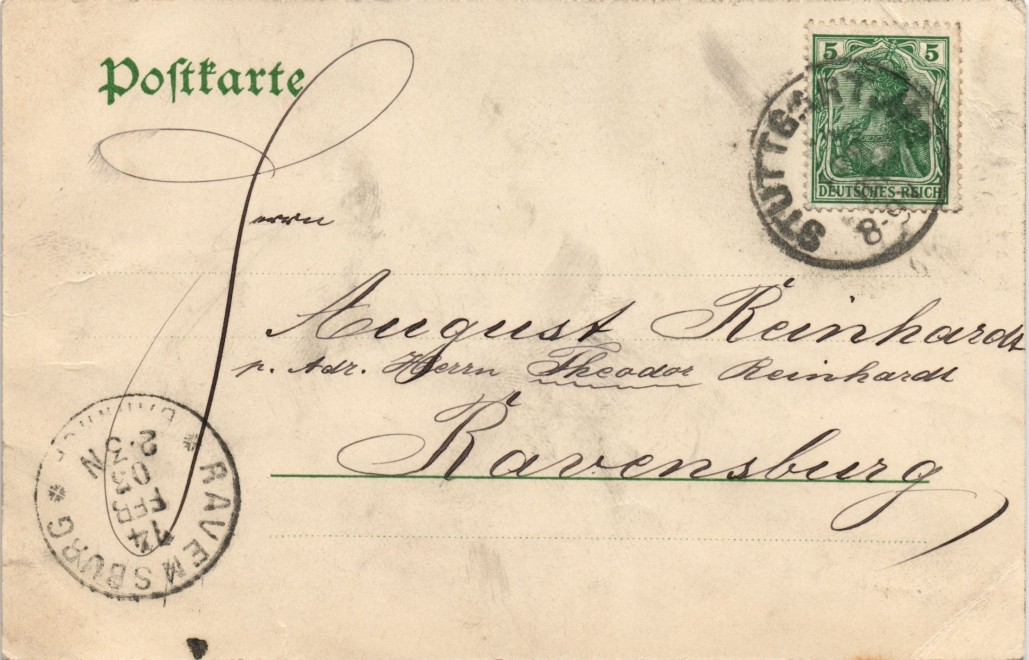 Postkarte
5 5
DEUTSCHES-REICH
STUTTGART
8-9
Herrn
August Reinhardt
p. Adr. Herrn Theodor Reinhardt
Ravensburg
RAVENSBURG
14
FEB
03
2-3
N